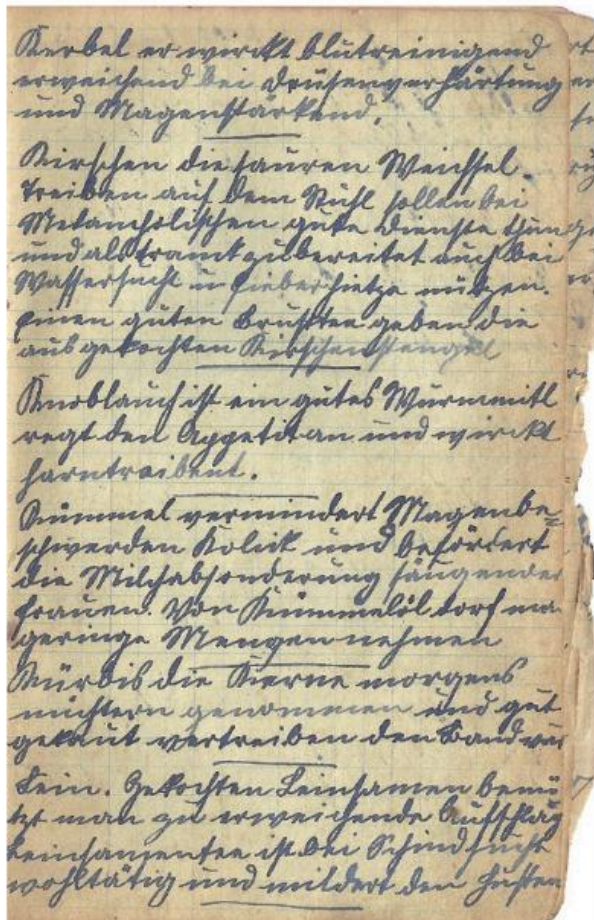 Kerbel er wirckt blutreinigend
erweichend bei Drüsenverhärtung
und Magenstärkend.
Kirschen die sauren Weichsel.
Treiben auf dem Stuhl sollen bei
Melancholischen gute Dienste thun
und als tramk zubereitet auch bei
Wassersucht u fieberhietze nützen.
Einen guten Brusttee geben die
ausgekochten Kirschenstengel
Knoblauch ist ein gutes Wurmmitl
regt den Appetit an und wirckt
harntreibent.
Kümmel vermindert Magenbe=
schwerden Kolick und befördert
die Milchabsonderung säugender
Frauen. Von Kümmelöl torf ma
geringe Mengen nehmen
Kürbis die Kerne morgens
nüchtern genommen und gut
gekaut vertreiben den Bandwur
Lein. Gekochten Leinsamen benü
tzt man zu erweichende Aufschläg
Leinsamentee ist bei Schindsucht
wohltätig und mildert den Husten